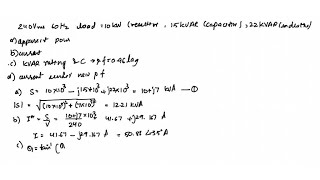 240Vrms 60Hz load = 10kW (resistor, 15KVAR (capacitor), 22KVAR (inductor)
a) apparent pow
b) current
c) KVAR rating & C → pf = 0.96 lag
d) current under new pf
a) S = 10×10³ - j15×10³ + j22×10³ = 10+j7 kVA —①
|S| = √(10×10³)² + (7×10³)² = 12.21 KVA
b) I* = S/V = 10+j7×10³/240 = 41.67 + j29.167 A
I = 41.67 - j29.167 A = 50.88 ∠-35° A
c) θ₁ = tan⁻¹ (Q₁